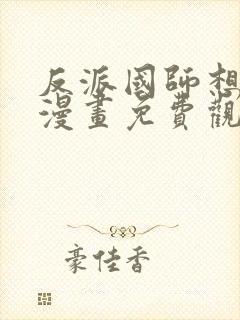 反派國師想
漫畫免費觀
豪佳香